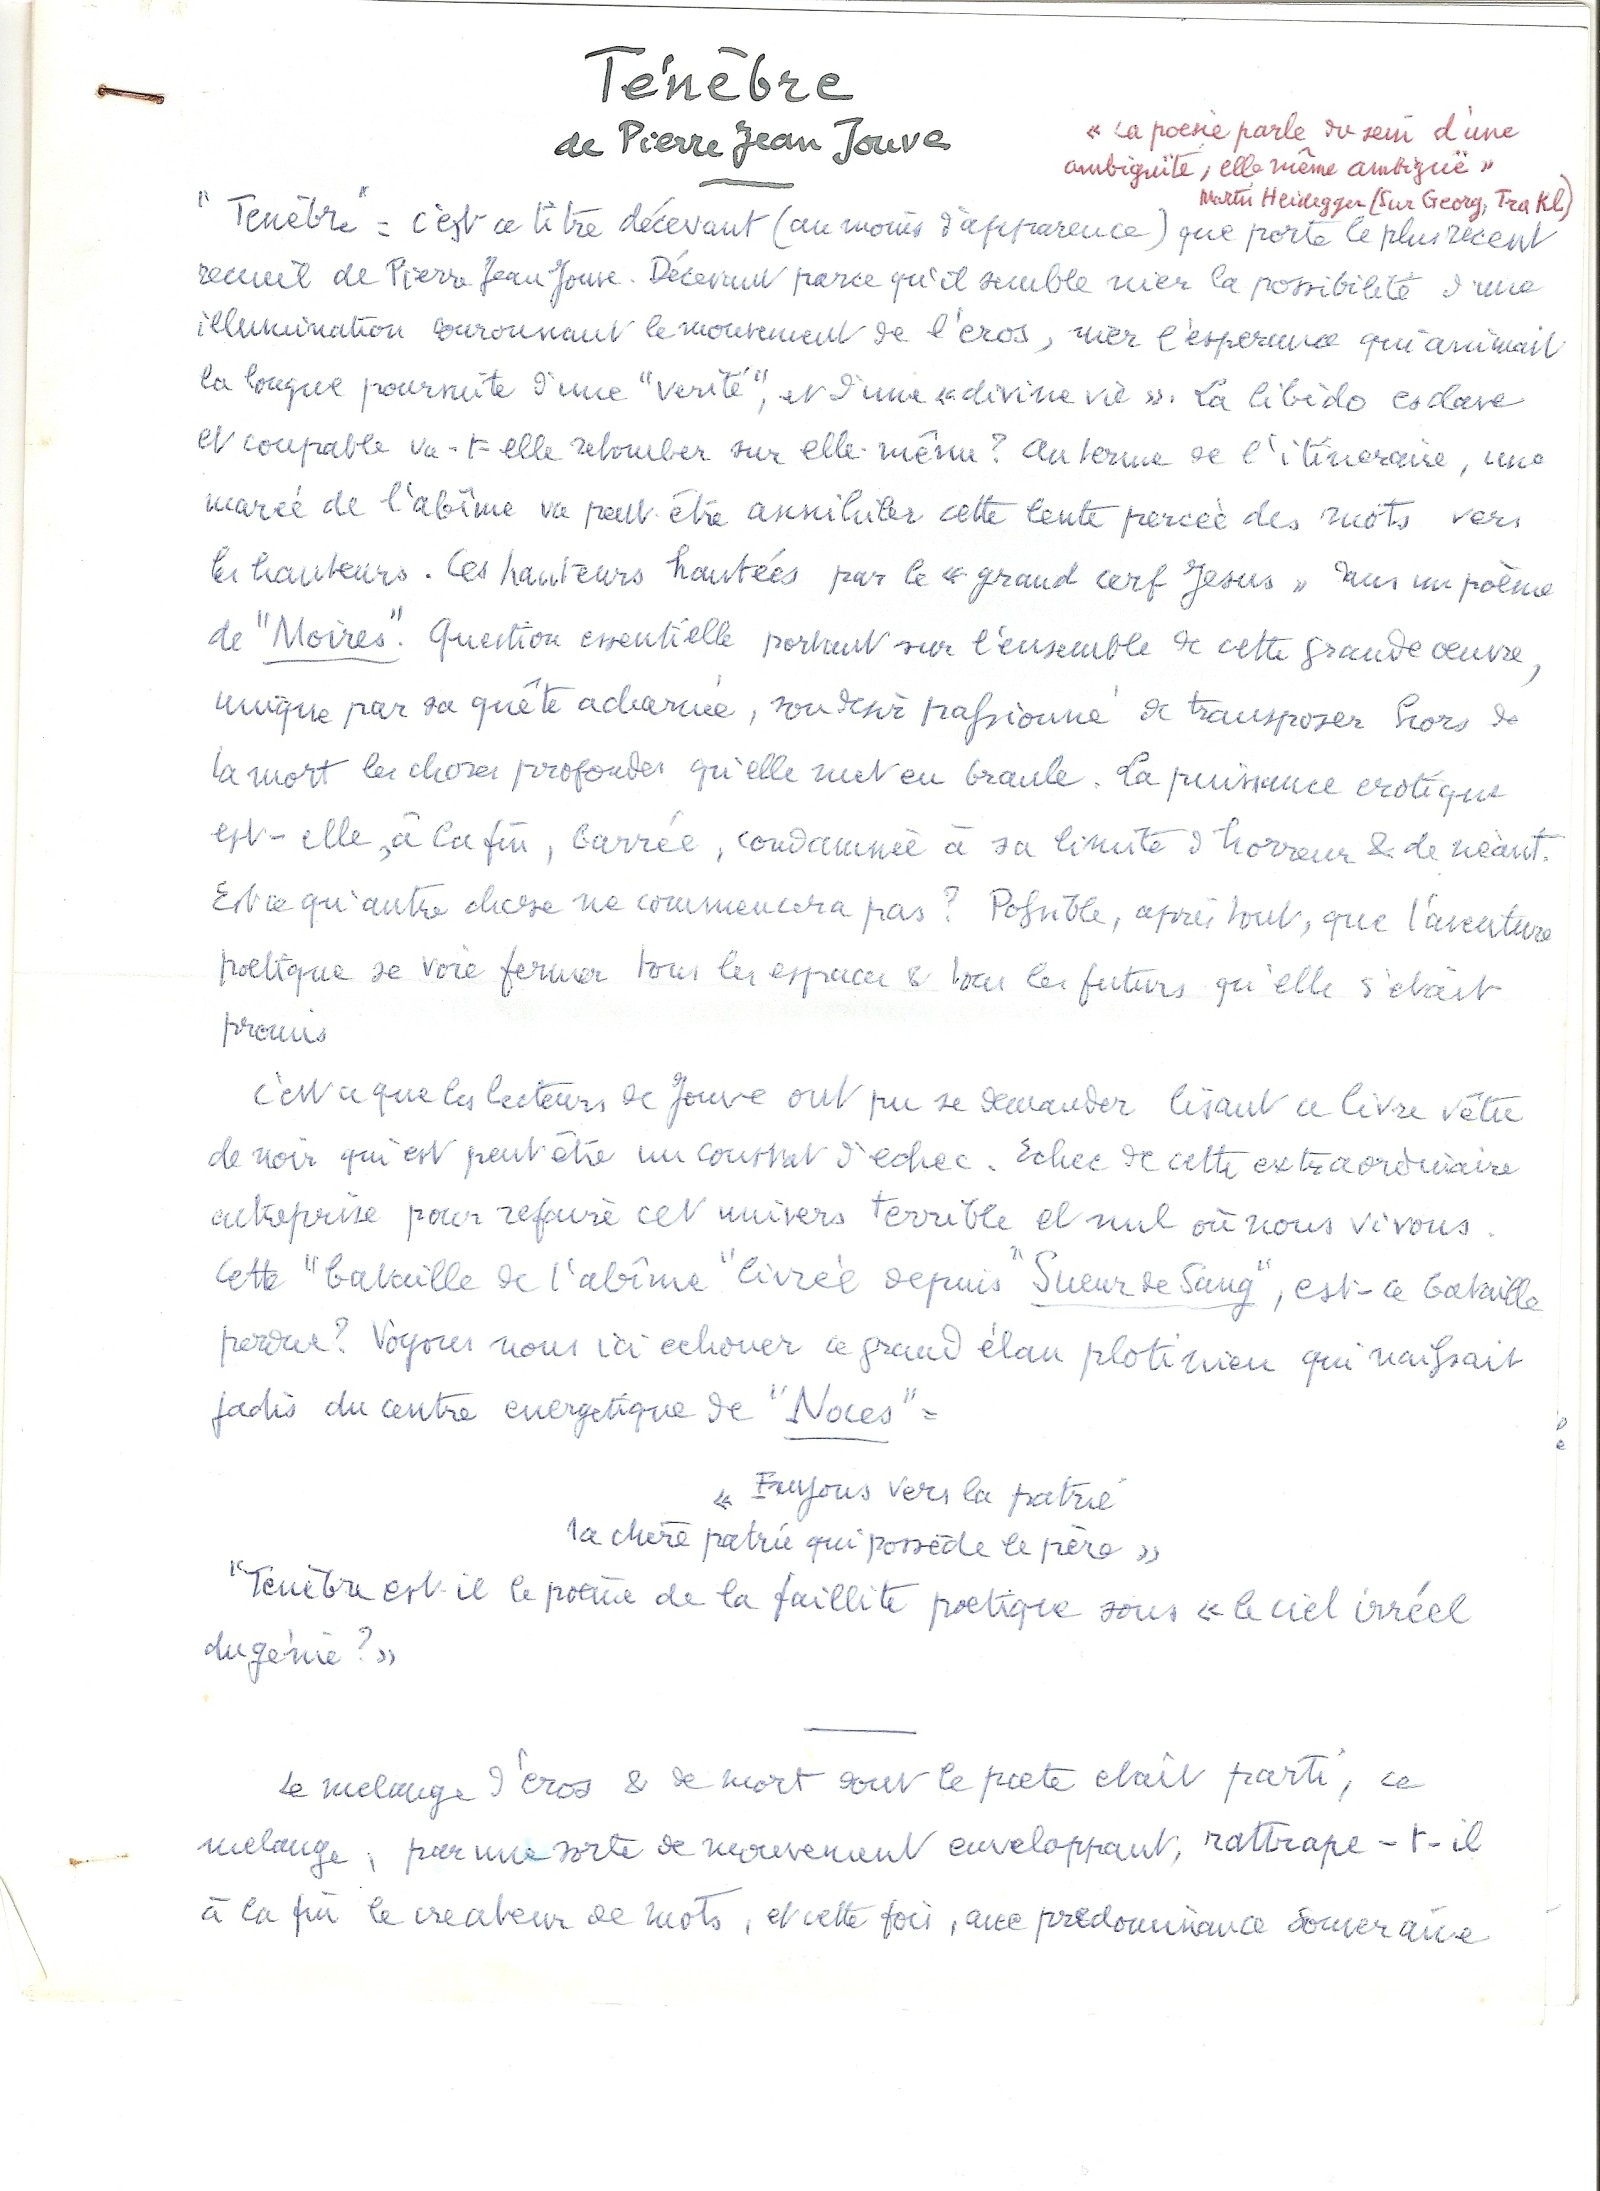 Ténèbre
de Pierre Jean Jouve
« La poésie parle du sein d'une
ambiguïté, elle même ambiguë »
Martin Heidegger (Sur Georg, Trakl)
"Tenèbre" = c'est ce titre décevant (au moins d'apparence) que porte le plus récent
recueil de Pierre Jean Jouve. Décevant parce qu'il semble nier la possibilité d'une
illumination couronnant le mouvement de l'éros, nier l'esperance qui animait
la longue poursuite d'une "verité", et d'une « divine vie ». La libido esclave
et coupable va-t-elle retomber sur elle-même? Au terme de l'itineraire, une
marée de l'abîme va peut-être annihiler cette lente percée des mots vers
les hauteurs. Ces hauteurs hantées par le « grand cerf Jesus » dans un poème
de "Moires". Question essentielle portant sur l'ensemble de cette grande œuvre,
unique par sa quête acharnée, son desir passionné de transposer hors de
la mort les choses profondes qu'elle met en branle. La puissance erotique
est-elle, à la fin, barrée, condamnée à sa limite d'horreur & de néant.
Est ce qu'autre chose ne commencera pas? Possible, après tout, que l'aventure
poetique se voie fermer tous les espaces & tous les futurs qu'elle s'etait
promis
C'est ce que les lecteurs de Jouve ont pu se demander lisant ce livre vêtu
de noir qui est peut être un constat d'echec. Echec de cette extraordinaire
entreprise pour refaire cet univers terrible et nul où nous vivons.
Cette "bataille de l'abîme" livrée depuis "Sueur de Sang", est-ce bataille
perdue? Voyons nous ici echouer ce grand élan plotinien qui naissait
jadis du centre energetique de "Noces" =
« Fuyons vers la patrie
la chère patrie qui possède le père »
"Tenèbre est-il le poème de la faillite poetique sous « le ciel irréel
du génie? »
Le melange d'eros & de mort dont le poete etait parti, ce
melange, par une sorte de mouvement enveloppant, rattrape-t-il
à la fin le createur de mots, et cette fois, avec predominance souveraine